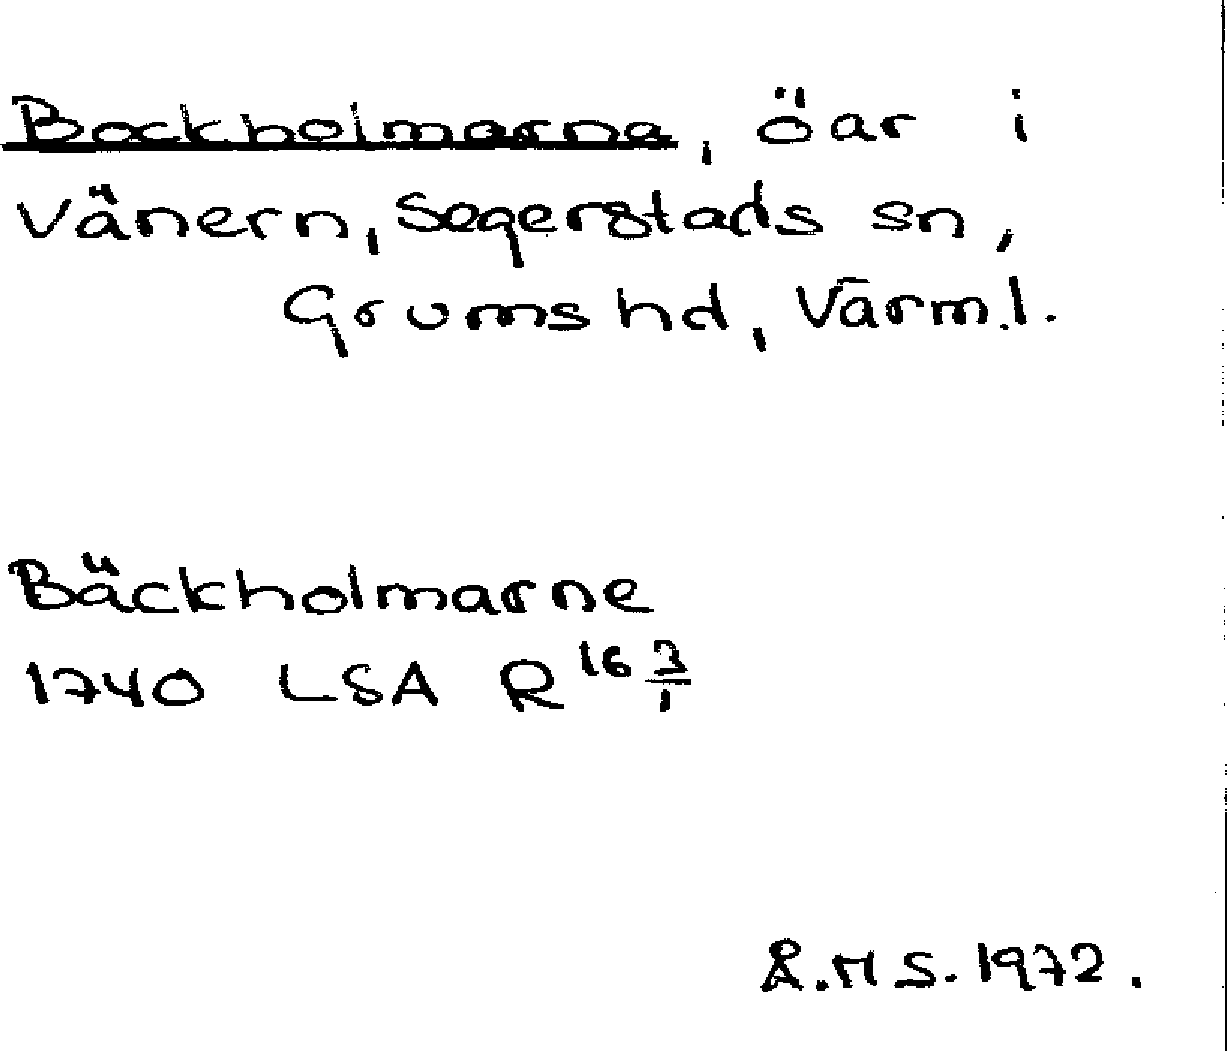 Bockholmarna, öar i
Vänern, Segerstads sn,
Grums hd, Värml.
Bäckholmarne
1740 LSA R 16 3/1
Å.M S. 1972.